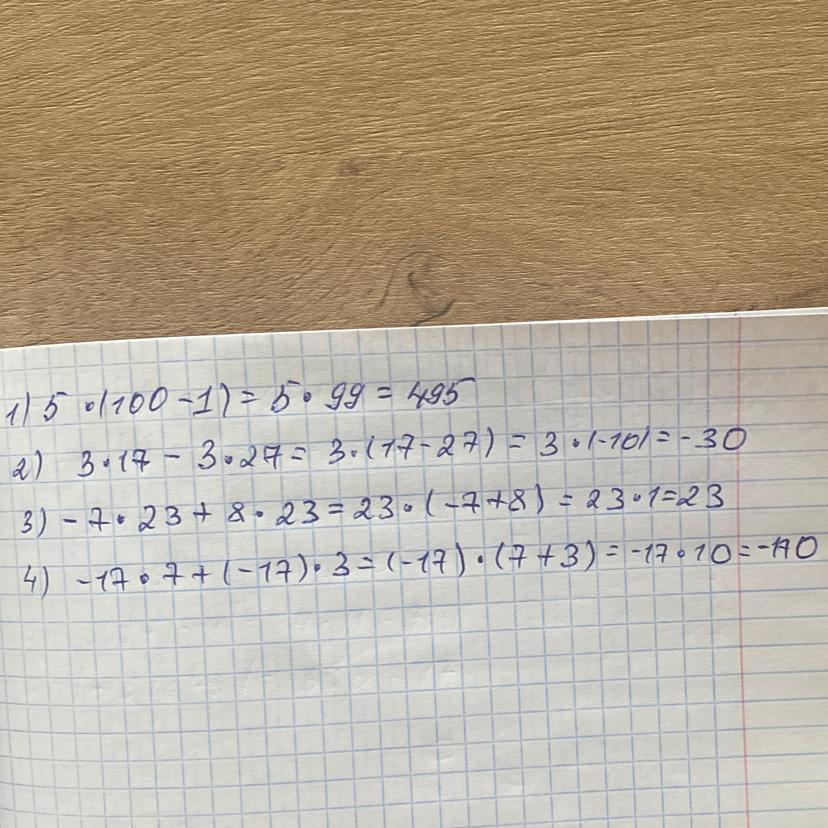 1) 5 · (100 - 1) = 5 · 99 = 495
2) 3 · 17 - 3 · 27 = 3 · (17 - 27) = 3 · (-10) = -30
3) -7 · 23 + 8 · 23 = 23 · (-7 + 8) = 23 · 1 = 23
4) -17 · 7 + (-17) · 3 = (-17) · (7 + 3) = -17 · 10 = -170